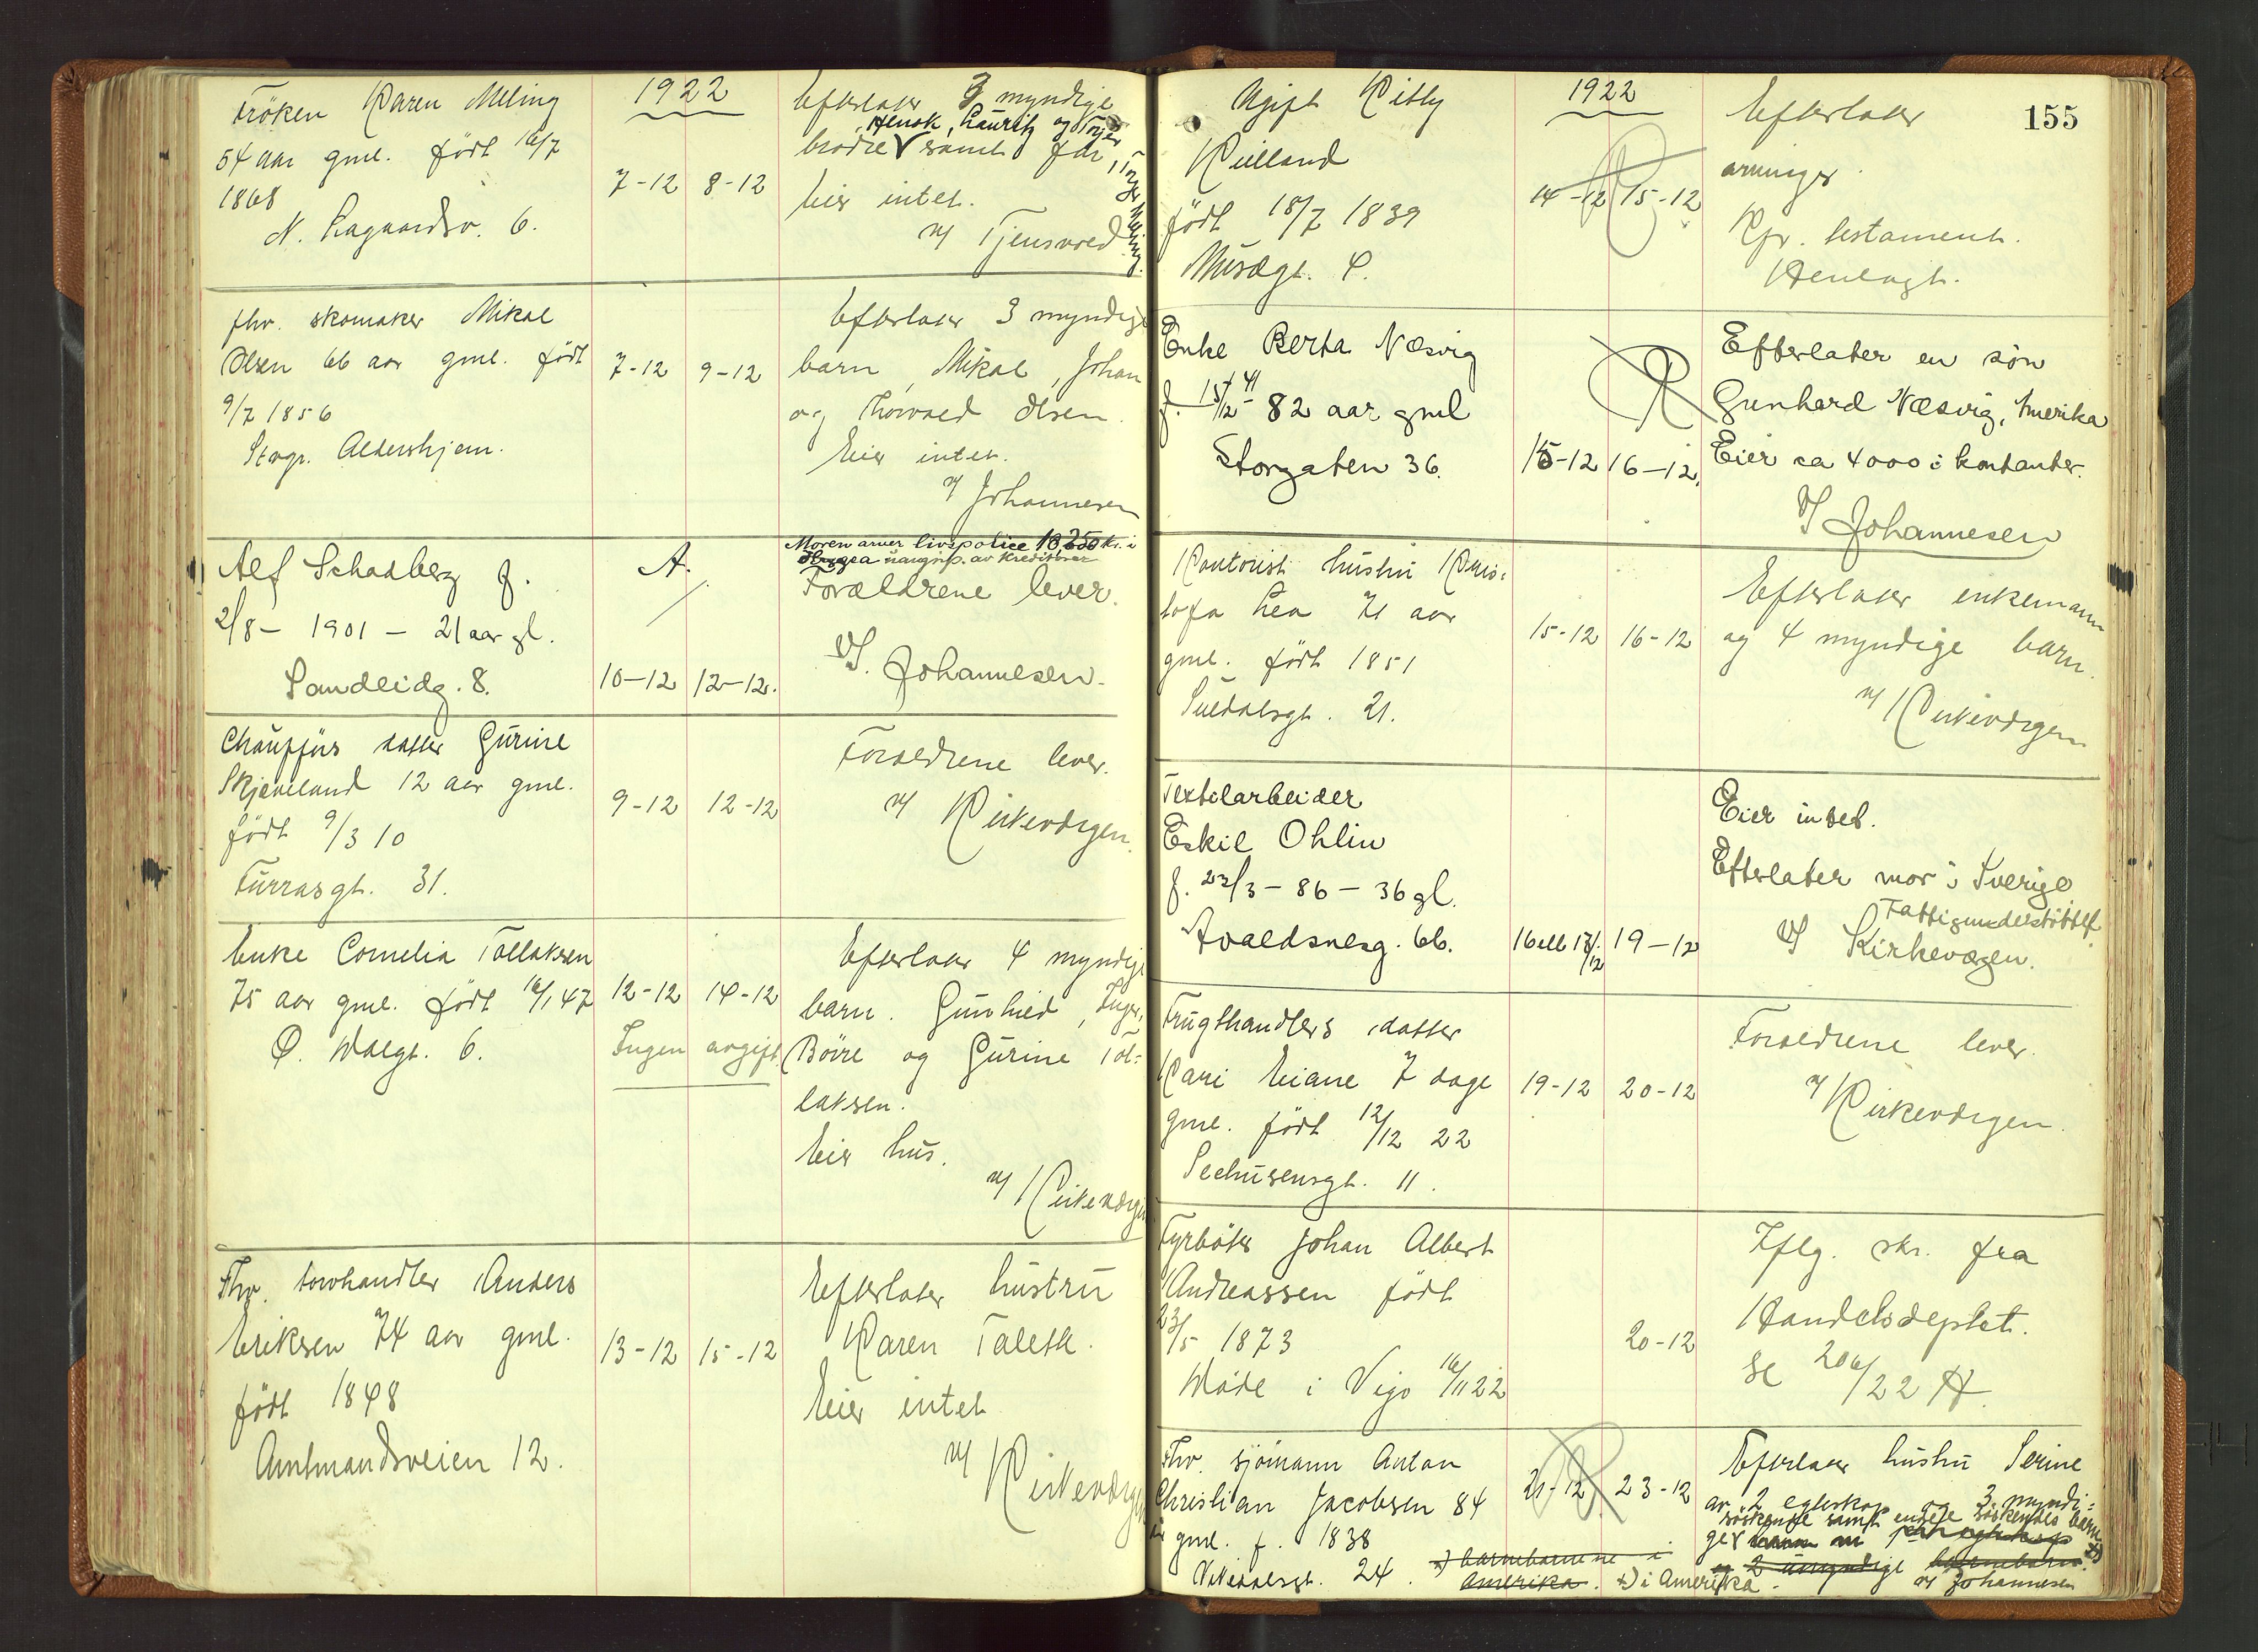 Frøken Karen Meling
54 aar gml. født 16/7
1868
N. Lagaardsv. 6.
1922
7-12 8-12
Efterlater 3 myndige
Henok, Lauritz og Torjer
brødre samt far, Torjer Meling.
Eier intet.
v/ Tjensvold
fhv. skomaker Mikal
Olsen 66 aar gml. født
9/7 1856
Stvgr. Aldershjem.
7-12 9-12
Efterlater 3 myndige
barn, Mikal, Johan
og Thorvald Olsen.
Eier intet.
v/ Johannesen
Alf Schadberg f.
2/8 - 1901 - 21 aar gl.
Sandeidg. 8.
A.
10-12 12-12.
Moren arver livspolice 10,250 kr. i
uangrip. av kreditorer
Forældrene lever.
v/ Johannesen.
Chauffjørs datter Gurine
Skjæveland 12 aar gml.
født 9/3 10
Furrasgt. 31.
9-12 12-12
Forældrene lever.
v/ Kirkeværgen.
Enke Cornelia Tollaksen
75 aar gml. født 16/1 47
Ø. Walgt. 6.
12-12 14-12
Ingen avgift.
Efterlater 4 myndige
barn. Gunhild, Inger,
Børre og Gurine Tol=
laksen.
Eier hus.
v/ Kirkeværgen
Fhv. torvhandler Anders
Eriksen 74 aar gml.
født 1848
Amtmandsveien 12.
13-12 15-12
Efterlater hustru
Karen Taleth.
Eier intet
v/ Kirkeværgen
155
Ugift Kitty
Kielland
født 18/7 1839
Musægt. 4.
1922
14-12 15-12
Efterlater
arvinger.
Kfr. testament.
Henlagt.
Enke Berta Næsvig
f. 15/12 - 41 82 aar gml
Storgaten 36.
15-12 16-12.
Efterlater en søn
Gunhard Næsvig, Amerika
Eier ca 4000 i kontanter.
v/ Johannesen
Kontorist hustru Kris=
tofa Lea 71 aar
gml. født 1851
Suldalsgt. 21.
15-12 16-12
Efterlater enkemann
og 4 myndige barn.
v/ Kirkeværgen
Textilarbeider
Eskil Ohlin
f. 23/3 - 86 - 36 gl.
Avaldsnesg. 66.
16 ell 17/12 19-12
Eier intet.
Efterlater mor i Sverige
Fattigunderstøttet.
v/ Kirkeværgen.
Frugthandlers datter
Kari Eiane 7 dage
gml. født 12/12 22
Seehusensgt. 11.
19-12 20-12
Forældrene lever.
v/ Kirkeværgen.
Fyrbøter Johan Albert
Andreassen født
23/5 1873
Døde i Vigo 16/11 22
20-12
Iflg. skr. fra
Handelsdeptet.
Se 206/22 A.
Fhv. sjømann Anton
Christian Jacobsen 84
aar gml. f. 1838
Vikedalsgt. 24.
21-12 23-12
Efterlater hustru Serine
av 2 egteskap og 3 myndi=
søskende samt endele søskendes barn
ge
og 2 umyndige barnebarn.
x) barnebarnene i
Amerika. x) i Amerika.
v/ Johannesen